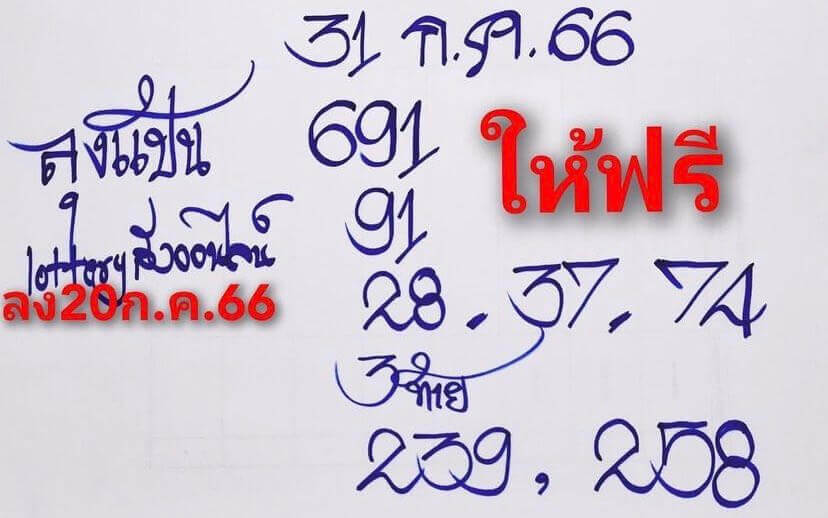 31 ก.ค.66
ลงแป้น
691
ให้ฟรี
91
lottery สิงออนไลน์
28 . 37 . 74
ลง20ก.ค.66
3 ท้าย
239 , 258